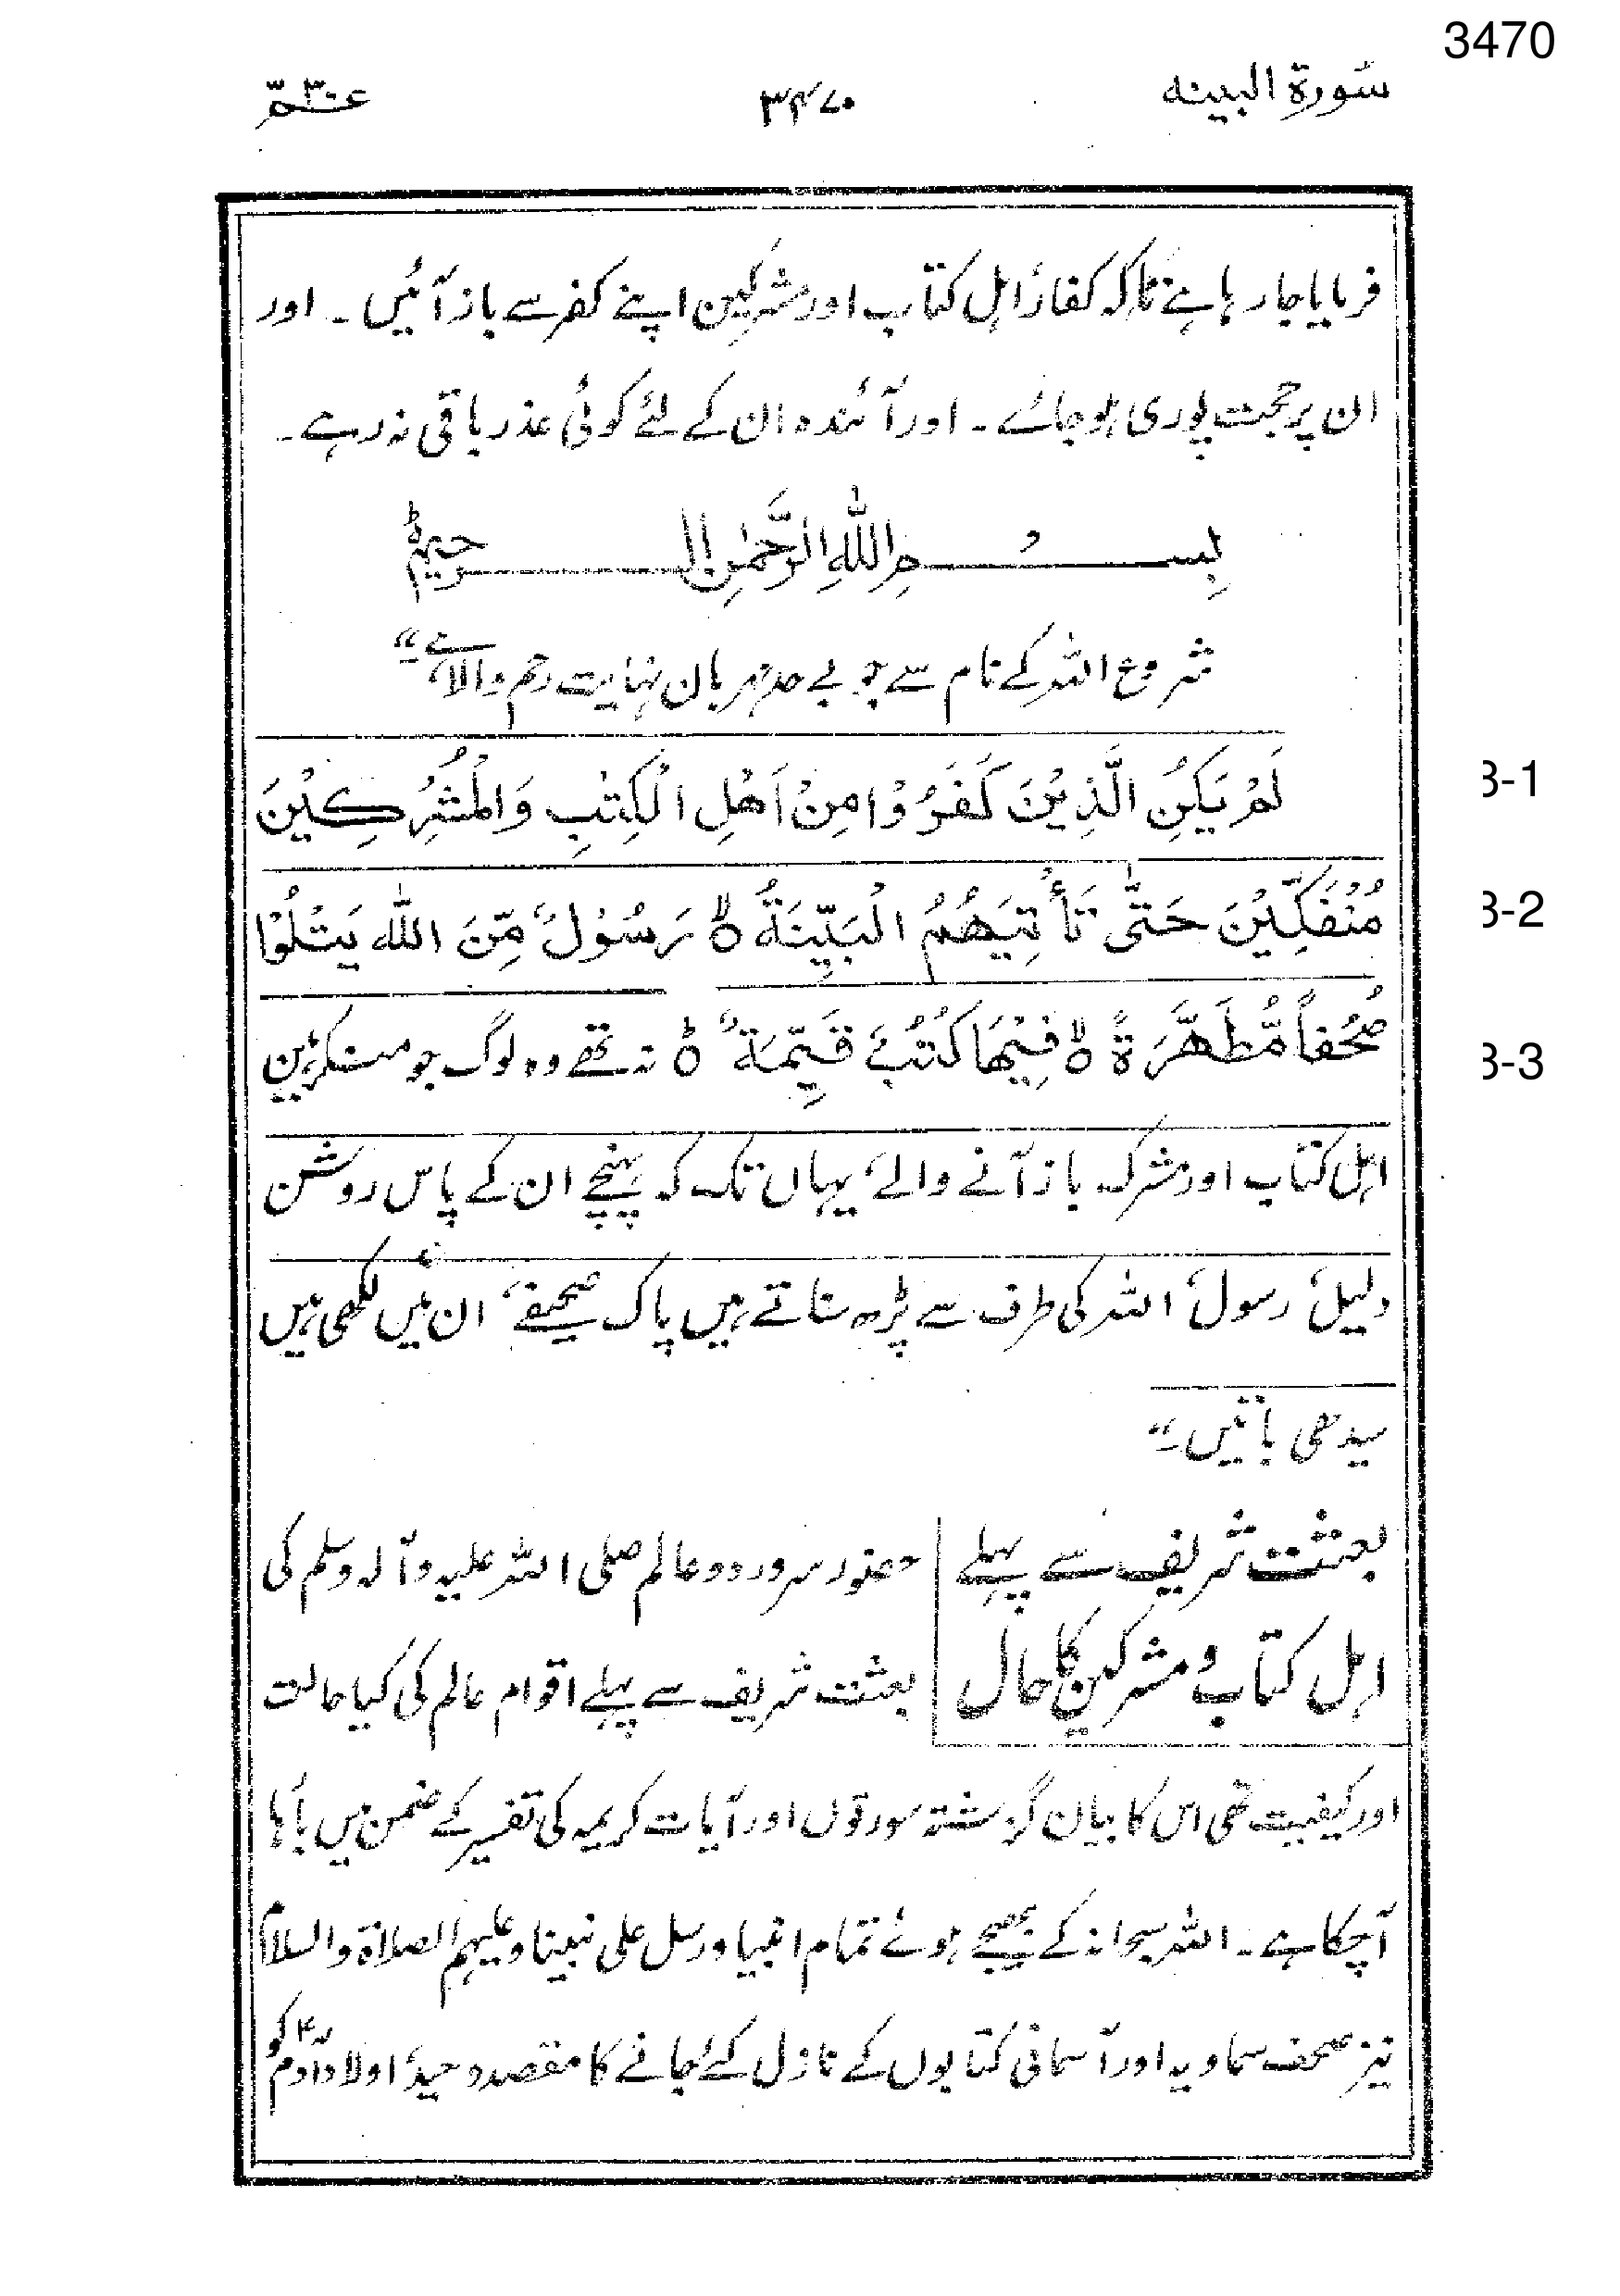 3470
سورة البينه ۳۴۷۰ عمّ ۳۰
فرمایا جا رہا ہے تاکہ کفار اہل کتاب اور مشرکین اپنے کفر سے باز آئیں ۔ اور
ان پر حجت پوری ہو جائے ۔ اور آئندہ ان کے لئے کوئی عذر باقی نہ رہے ۔
بِسْمِ اللّٰهِ الرَّحْمٰنِ الرَّحِيْمِ ط
شروع اللہ کے نام سے جو بے حد مہربان نہایت رحم والا ہے ۔“
لَمْ يَكُنِ الَّذِيْنَ كَفَرُوْا مِنْ اَهْلِ الْكِتٰبِ وَالْمُشْرِكِيْنَ
3-1
مُنْفَكِّيْنَ حَتّٰى تَأْتِيَهُمُ الْبَيِّنَةُ ۵ لا رَسُوْلٌ مِّنَ اللّٰه يَتْلُوْا
3-2
صُحُفاً مُّطَهَّرَةً ۵ لا فِيْهَا كُتُبٌ قَيِّمَةٌ ۵ ط نہ تھے وہ لوگ جو منکر ہیں
3-3
اہل کتاب اور مشرک باز آنے والے، یہاں تک کہ پہنچے ان کے پاس روشن
دلیل، رسول، اللہ کی طرف سے پڑھ سناتے ہیں پاک صحیفے، ان میں لکھی ہیں
سیدھی باتیں ۔“
بعثت شریف سے پہلے
اہل کتاب و مشرکین کا حال
حضور سرور دو عالم صلی اللہ علیہ وآلہ وسلم کی
بعثت شریف سے پہلے اقوام عالم کی کیا حالت
اور کیفیت تھی اس کا بیان گزشتہ سورتوں اور آیات کریمہ کی تفسیر کے ضمن میں بارہا
آچکا ہے ۔ اللہ سبحانہ کے بھیجے ہوئے تمام انبیا و رسل علی نبینا و علیہم الصلاة والسلام
نیز صحف سماویہ اور آسمانی کتابوں کے نازل کئے جانے کا مقصد وحید، اولاد آدم کو